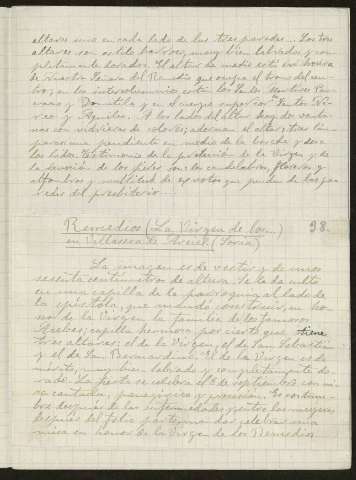 altares uno en cada lado de las tres paredes... Los tres
altares son estilo barroco, muy bien labrados y com
pletamente dorados. El altar de medio está en honra
de Nuestra Señora del Remedio que ocupa el trono del cen
tro; en los intercolumnios están los Santos Mártires Pan
cracio y Domitila y en el cuerpo superior Santos Ni
reo y Aquileo. A los lados del altar hay dos venta
nas con vidrieras de colores; adornan el altar, tres lám
paras una pendiente en medio de la bóveda y dos a
los lados. Testimonio de la protección de la Virgen y de
la devoción de los fieles son: los candelabros, floreros y
alfombras y multitud de exvotos que penden de las pa
redes del presbiterio...
Remedios (La Virgen de los) 98.
en Villasea de Arciel (Soria)
La imagen es de vestir y de unos
sesenta centímetros de altura. Se le da culto
en una capilla de la parroquia al lado de
la epístola, que mandó construir, en ho
nor de la Virgen la familia de los famosos
capilla hermosa por cierto que tiene
tres altares: el de la Virgen, el de San Sebastián
y el de San Bernardino. El de la Virgen es de
mérito, muy bien labrado y completamente do
rado. La fiesta se celebra el 8 de septiembre con mi
sa cantada, panegírico y procesión. Es costum
bre después de las enfermedades y entre las mujeres,
después del feliz parto mandar celebrar una
misa en honor de la Virgen de los Remedios.